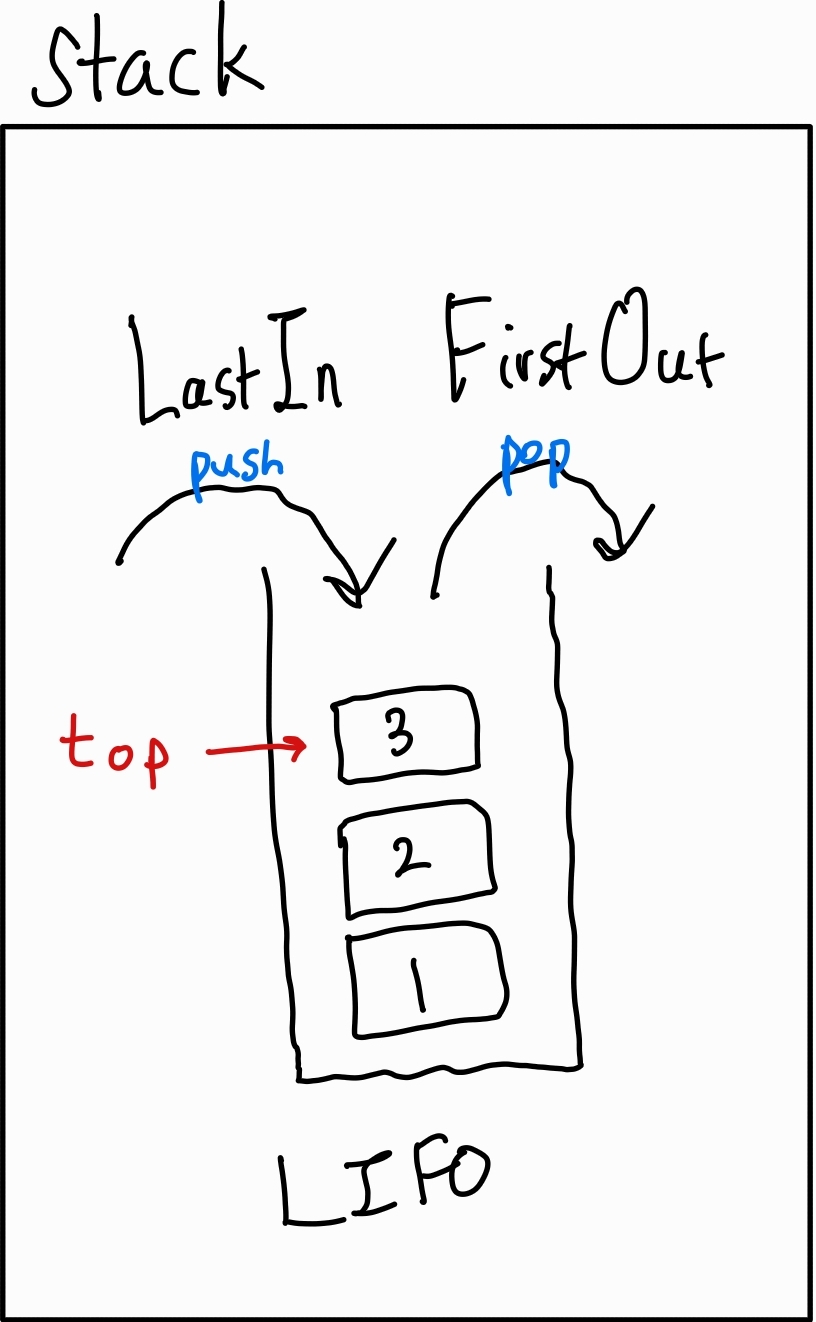 Stack
Last In First Out
push pop
top 3
2
1
LIFO